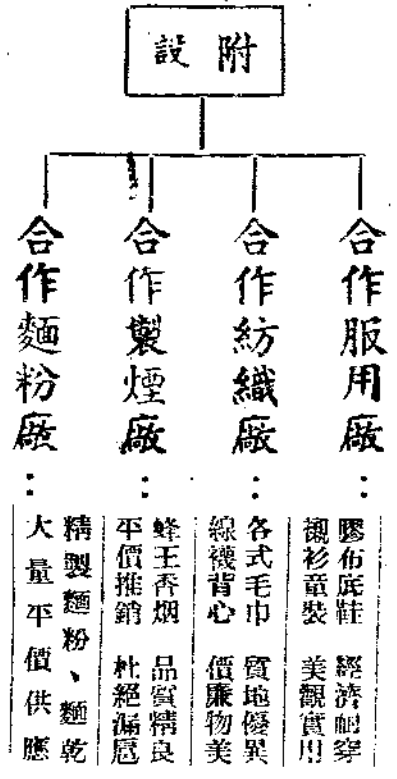 附設
合作服用廠：
膠布底鞋 經濟耐穿
襯衫童裝 美觀實用
合作紡織廠：
各式毛巾 質地優異
線襪背心 價廉物美
合作製煙廠：
蜂王香烟 品質精良
平價推銷 杜絕漏卮
合作麵粉廠：
精製麵粉、麵乾
大量平價供應